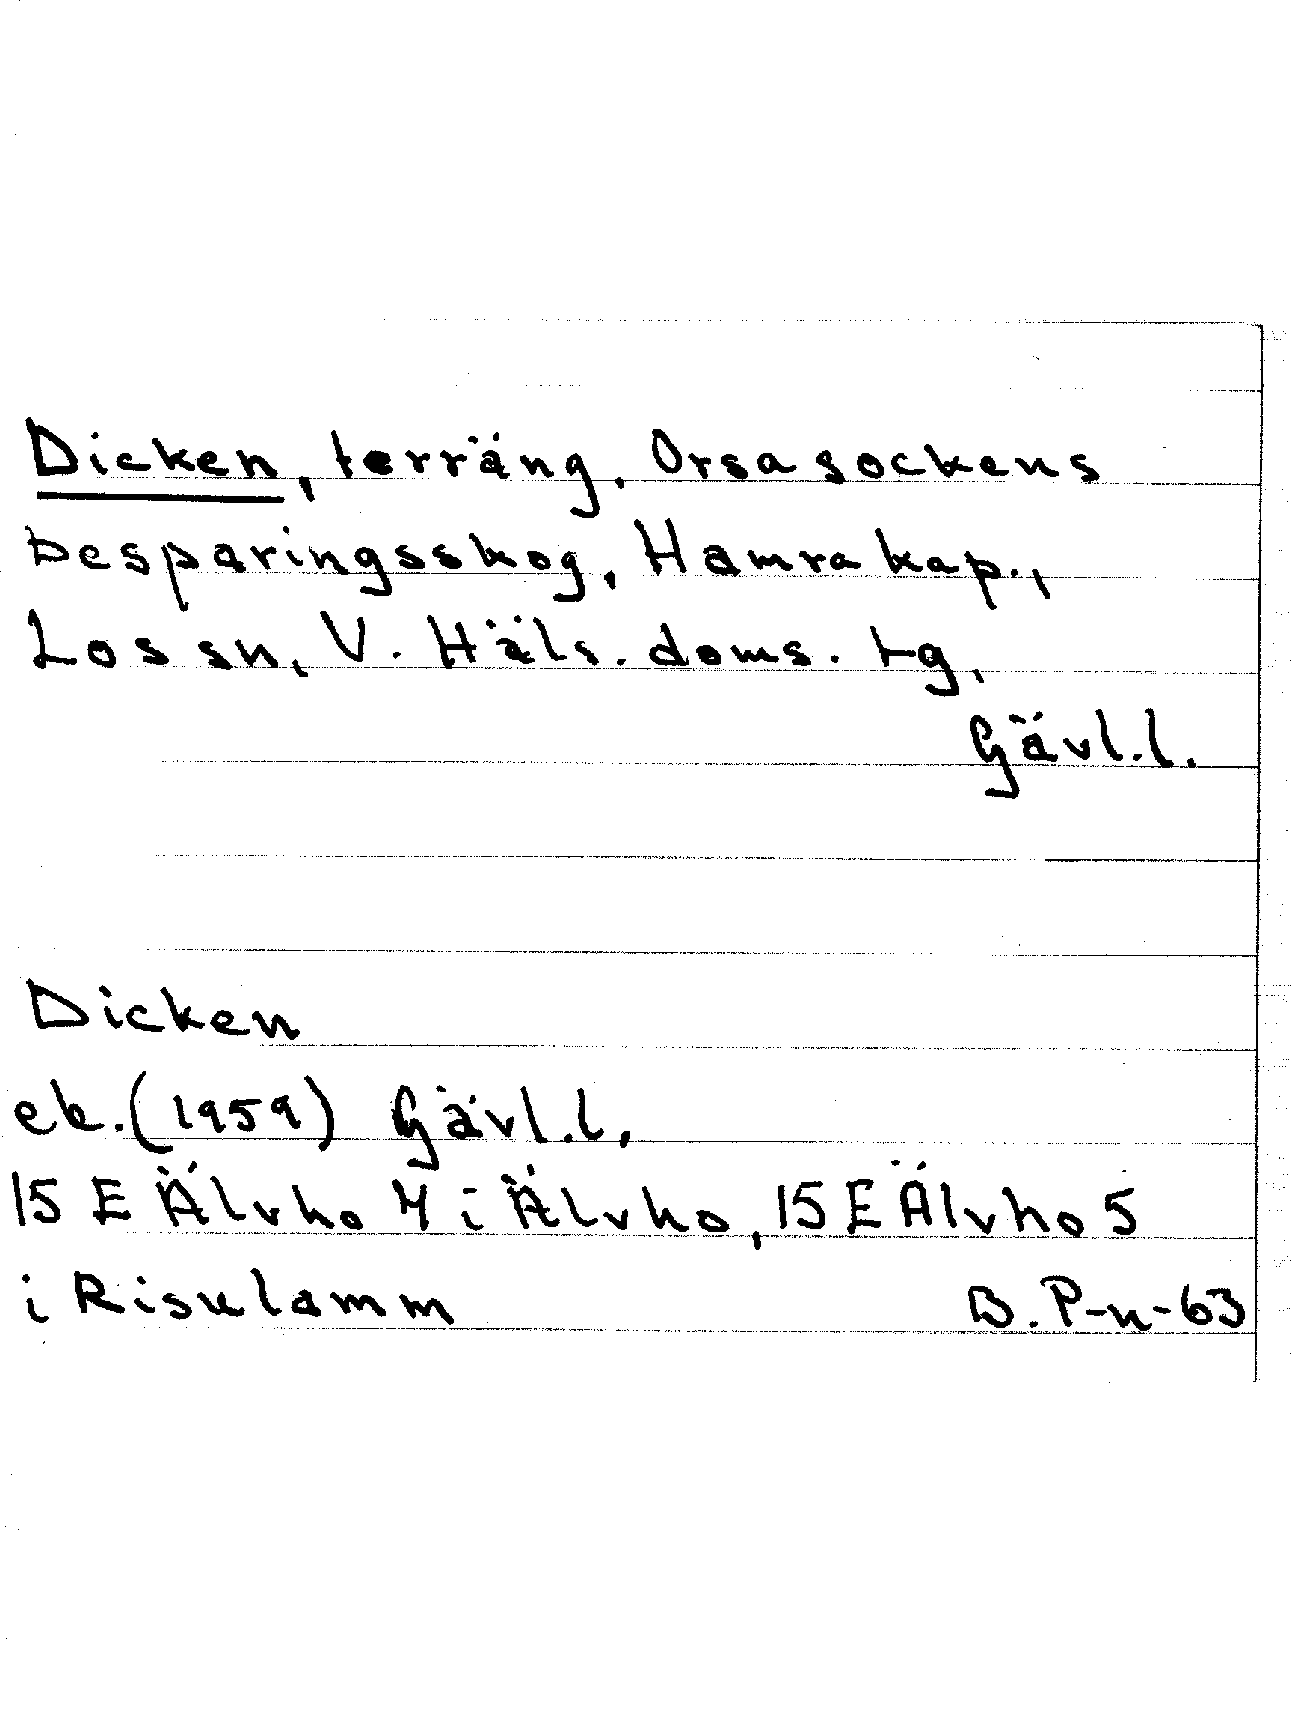 Dicken, terräng, Orsa sockens
besparingsskog, Hamra kap.,
Los sn, V. Häls. doms. tg,
Gävl.l.
Dicken
ek. (1959) Gävl.l,
15 E Älvho 4 i Älvho, 15 E Älvho 5
i Risulamm
B. P-n-63